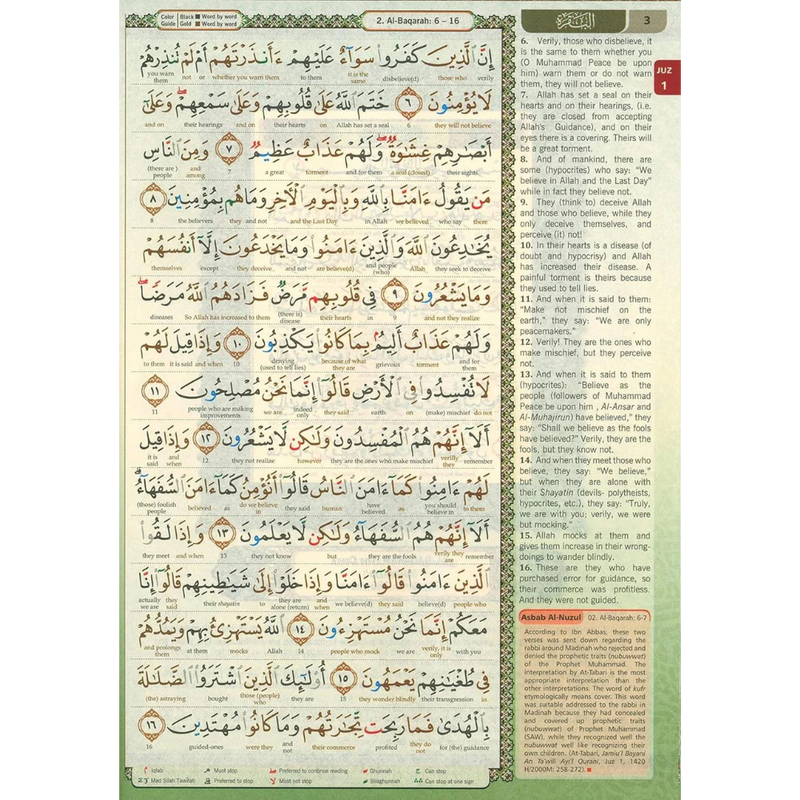 Color Guide Black Word by word Gold Word by word
2. Al-Baqarah: 6 – 16
البقرة
3
JUZ 1
إِنَّ الَّذِينَ كَفَرُوا سَوَاءٌ عَلَيْهِمْ ءَأَنذَرْتَهُمْ أَمْ لَمْ تُنذِرْهُمْ
you warn them not or whether you warn them to them it is the same disbelieve(d) those who verily
لَا يُؤْمِنُونَ ٦ خَتَمَ اللَّهُ عَلَىٰ قُلُوبِهِمْ وَعَلَىٰ سَمْعِهِمْ وَعَلَىٰ
and on their hearings and on their hearts on Allah has set a seal 6 they will not believe
أَبْصَارِهِمْ غِشَاوَةٌ وَلَهُمْ عَذَابٌ عَظِيمٌ ٧ وَمِنَ النَّاسِ
(there are ) people and among 7 a great torment and for them a seal (closed) their sights
مَن يَقُولُ ءَامَنَّا بِاللَّهِ وَبِالْيَوْمِ الْآخِرِ وَمَا هُم بِمُؤْمِنِينَ ٨
8 the believers they and not and the Last Day in Allah we believed say who
يُخَادِعُونَ اللَّهَ وَالَّذِينَ ءَامَنُوا وَمَا يَخْدَعُونَ إِلَّا أَنفُسَهُمْ
themselves except they deceive and not are believe(d) and people (who) Allah they seek to deceive
وَمَا يَشْعُرُونَ ٩ فِي قُلُوبِهِم مَّرَضٌ فَزَادَهُمُ اللَّهُ مَرَضًا
diseases So Allah has increased to them (there is) disease their hearts in 9 and not they realize
وَلَهُمْ عَذَابٌ أَلِيمٌ بِمَا كَانُوا يَكْذِبُونَ ١٠ وَإِذَا قِيلَ لَهُمْ
to them it is said and when 10 denying (used to tell lies) they are because of what grievous torment and for them
لَا تُفْسِدُوا فِي الْأَرْضِ قَالُوا إِنَّمَا نَحْنُ مُصْلِحُونَ ١١
11 people who are making improvements we are indeed only they said earth on (make) mischief do not
أَلَا إِنَّهُمْ هُمُ الْمُفْسِدُونَ وَلَٰكِن لَّا يَشْعُرُونَ ١٢ وَإِذَا قِيلَ
it is said and when 12 they not realize however they are the ones who make mischief verily they remember
لَهُمْ ءَامِنُوا كَمَا ءَامَنَ النَّاسُ قَالُوا أَنُؤْمِنُ كَمَا ءَامَنَ السُّفَهَاءُ
(those) foolish people believed as do we believe in they said human have believed as you should believe in to them
أَلَا إِنَّهُمْ هُمُ السُّفَهَاءُ وَلَٰكِن لَّا يَعْلَمُونَ ١٣ وَإِذَا لَقُوا
they meet and when 13 they not know but they are the fools verily they are remember
الَّذِينَ ءَامَنُوا قَالُوا ءَامَنَّا وَإِذَا خَلَوْا إِلَىٰ شَيَاطِينِهِمْ قَالُوا إِنَّا
actually we are they said their shayatin to they are alone (return) and when we believe(d) they said believe(d) people who
مَعَكُمْ إِنَّمَا نَحْنُ مُسْتَهْزِءُونَ ١٤ اللَّهُ يَسْتَهْزِئُ بِهِمْ وَيَمُدُّهُمْ
and prolongs them at them mocks Allah 14 people who mock we are verily, it is only with you
فِي طُغْيَانِهِمْ يَعْمَهُونَ ١٥ أُولَٰئِكَ الَّذِينَ اشْتَرَوُا الضَّلَالَةَ
(the) astraying bought those (people) who they are 15 they wonder blindly their transgression in
بِالْهُدَىٰ فَمَا رَبِحَت تِّجَارَتُهُمْ وَمَا كَانُوا مُهْتَدِينَ ١٦
16 guided-ones were they and not their commerce profited they do not for (the) guidance
Iqlab Must stop Preferred to continue reading Ghunnah Can stop
Mad Silah Tawilah Preferred to stop Must not stop Bilaghunnah Can stop at one sign
6. Verily, those who disbelieve, it
is the same to them whether you
(O Muhammad Peace be upon
him) warn them or do not warn
them, they will not believe.
7. Allah has set a seal on their
hearts and on their hearings, (i.e.
they are closed from accepting
Allah's Guidance), and on their
eyes there is a covering. Theirs will
be a great torment.
8. And of mankind, there are
some (hypocrites) who say: "We
believe in Allah and the Last Day"
while in fact they believe not.
9. They (think to) deceive Allah
and those who believe, while they
only deceive themselves, and
perceive (it) not!
10. In their hearts is a disease (of
doubt and hypocrisy) and Allah
has increased their disease. A
painful torment is theirs because
they used to tell lies.
11. And when it is said to them:
"Make not mischief on the
earth," they say: "We are only
peacemakers."
12. Verily! They are the ones who
make mischief, but they perceive
not.
13. And when it is said to them
(hypocrites): "Believe as the
people (followers of Muhammad
Peace be upon him , Al-Ansar and
Al-Muhajirun) have believed," they
say: "Shall we believe as the fools
have believed?" Verily, they are the
fools, but they know not.
14. And when they meet those who
believe, they say: "We believe,"
but when they are alone with
their Shayatin (devils- polytheists,
hypocrites, etc.), they say: "Truly,
we are with you; verily, we were
but mocking."
15. Allah mocks at them and
gives them increase in their wrong-
doings to wander blindly.
16. These are they who have
purchased error for guidance, so
their commerce was profitless.
And they were not guided.
Asbab Al-Nuzul 02. Al-Baqarah: 6-7
According to Ibn Abbas, these two
verses was sent down regarding the
rabbi around Madinah who rejected and
denied the prophetic traits (nubuwwat)
of the Prophet Muhammad. The
interpretation by At-Tabari is the most
appropriate interpretation than the
other interpretations. The word of kufr
etymologically means cover. This word
was suitable addressed to the rabbi in
Madinah because they had concealed
and covered up prophetic traits
(nubuwwat) of Prophet Muhammad
(SAW), while they recognized well the
nubuwwat well like recognizing their
own children. (At-Tabari, Jamiu'l Bayani
An Ta'wili Ayi'l Qurani, Juz 1, 1420
H/2000M: 258-272).